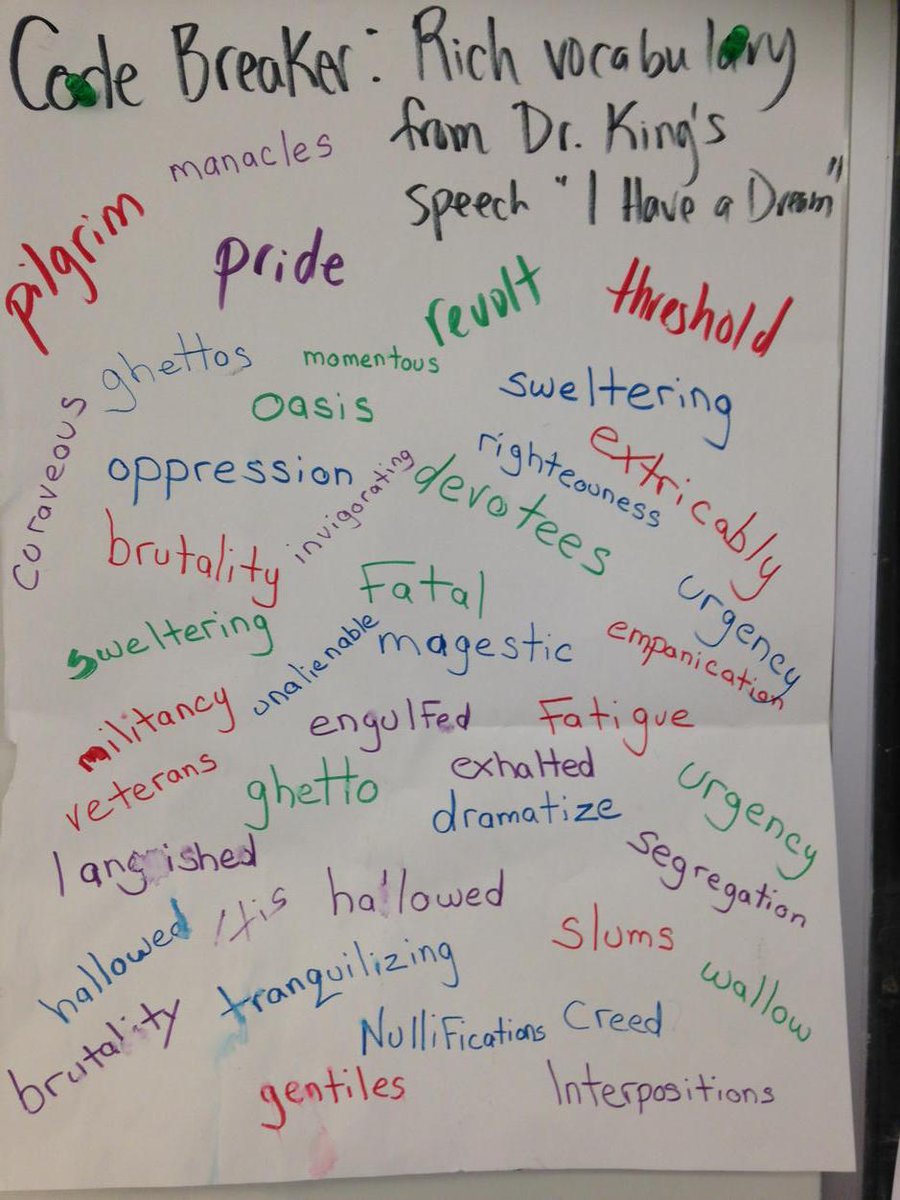 Code Breaker: Rich vocabulary
from Dr. King's
speech "I Have a Dream"
manacles
pilgrim
pride
revolt
threshold
ghettos
momentous
sweltering
oasis
coraveous
oppression
invigorating
devotees
righteouness
extricably
brutality
Fatal
urgency
sweltering
unalienable
magestic
empanication
militancy
engulfed
Fatigue
veterans
ghetto
exhalted
dramatize
urgency
langished
segregation
hallowed
hallowed
slums
tranquilizing
wallow
brutality
Nullifications
Creed
gentiles
Interpositions